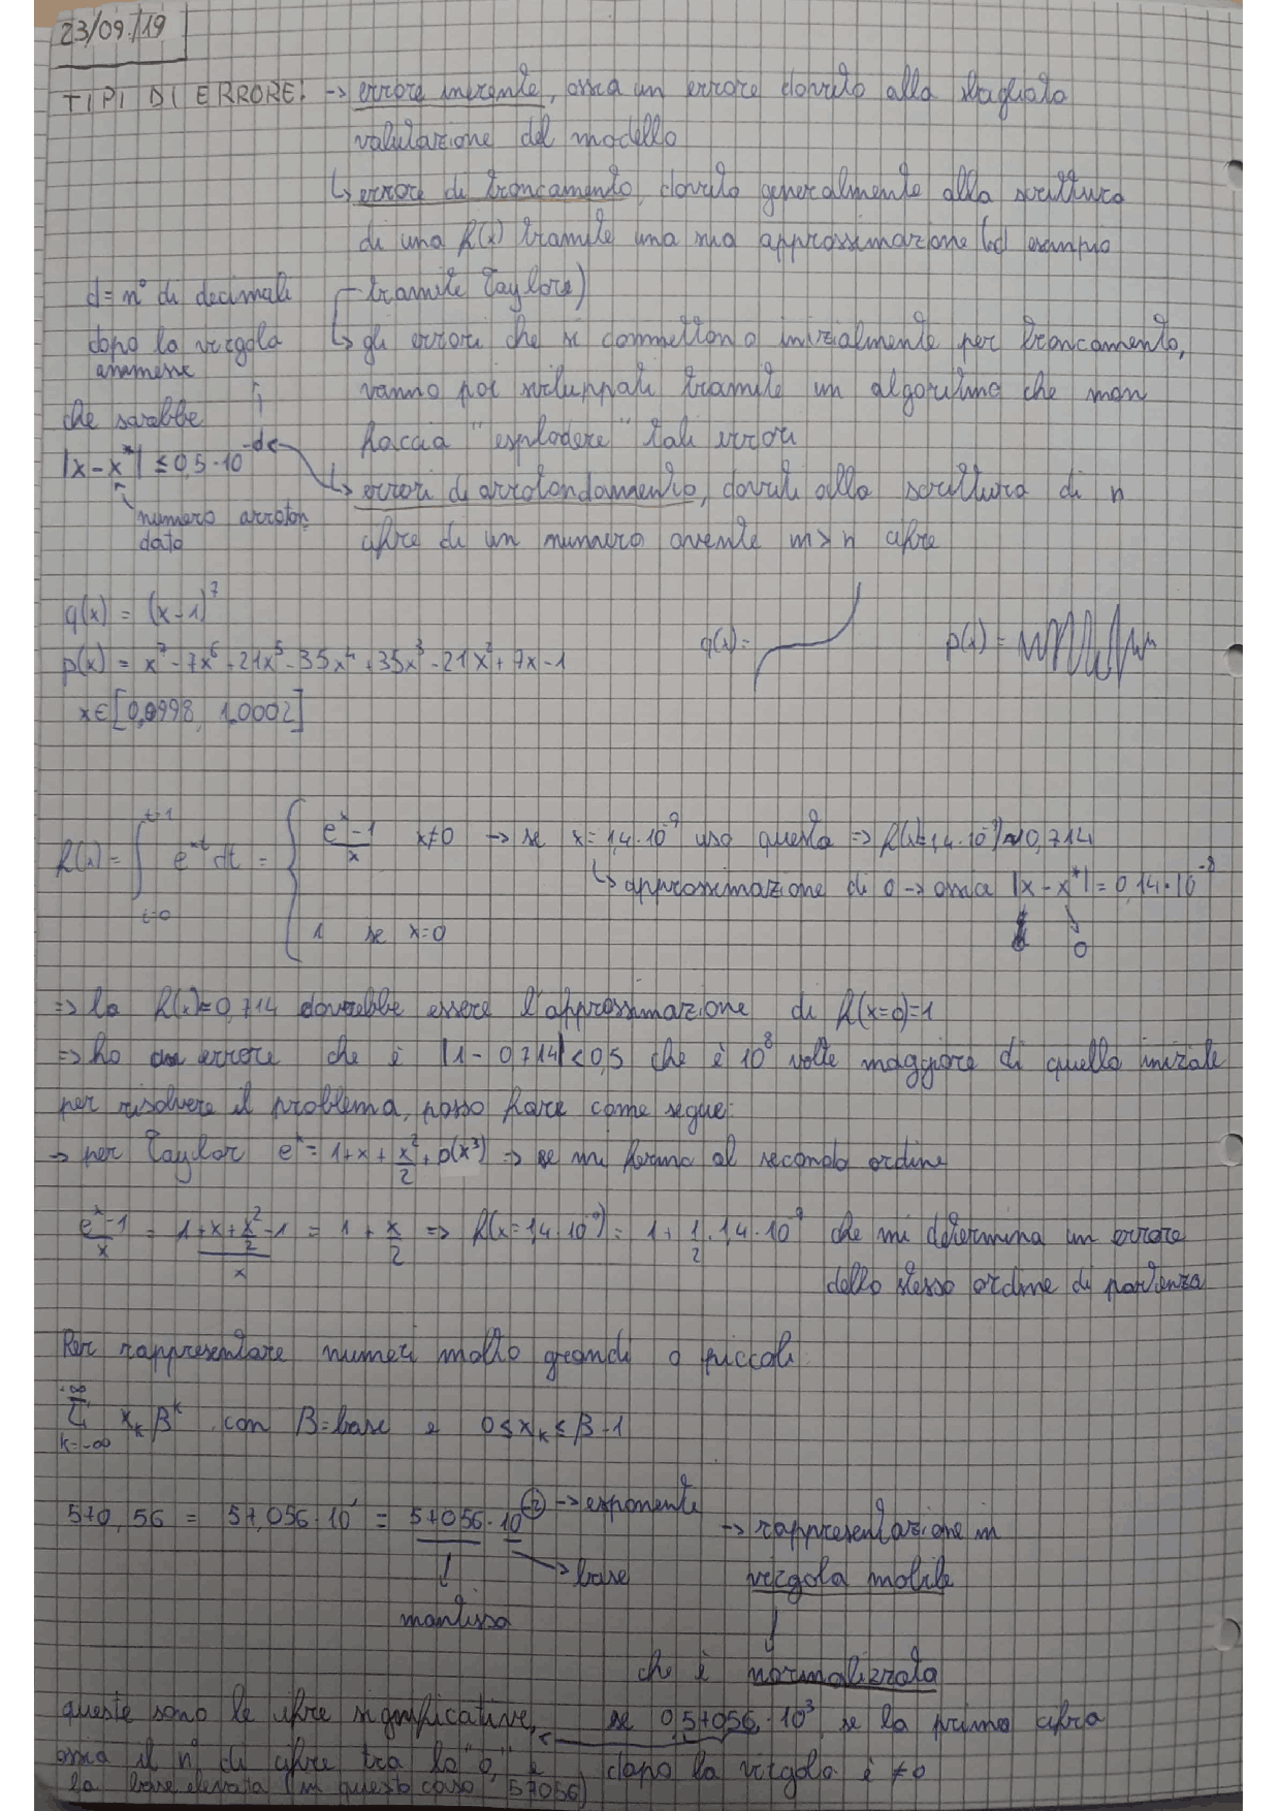 23/09/19
TIPI DI ERRORE: → errore inerente, ossia un errore dovuto alla sbagliata
valutazione del modello
↳ errore di troncamento, dovuto generalmente alla scrittura
di una f(x) tramite una sua approssimazione (ad esempio
tramite Taylor)
d = n° di decimali
dopo la virgola
ammesse
che sarebbe
|x - x*| ≤ 0,5·10^-d
numero arroton
dato
↳ gli errori che si commettono inizialmente per troncamento,
vanno poi sviluppati tramite un algoritmo che non
faccia "esplodere" tali errori
↳ errori di arrotondamento, dovuti alla scrittura di n
cifre di un numero avente m > n cifre
q(x) = (x-1)^7
p(x) = x^7 - 7x^6 + 21x^5 - 35x^4 + 35x^3 - 21x^2 + 7x - 1
x ∈ [0,9998, 1,0002]
q(x) =
p(x) =
f(x) = ∫_{t=0}^{t=1} e^{xt} dt = { (e^x - 1)/x x≠0 → se x = 1,4·10^-9 uso questa ⇒ f(x=1,4·10^-9) ≈ 0,714
↳ approssimazione di 0 → ossia |x - x*| = 0,14·10^-8
0
1 se x=0
⇒ la f(x)=0,714 dovrebbe essere l'approssimazione di f(x=0)=1
⇒ ho un errore che è |1 - 0,714| < 0,5 che è 10^8 volte maggiore di quello iniziale
per risolvere il problema, posso fare come segue:
→ per Taylor e^x = 1 + x + x^2/2 + o(x^3) ⇒ se mi fermo al secondo ordine
(e^x - 1)/x = (1 + x + x^2/2 - 1)/x = 1 + x/2 ⇒ f(x = 1,4·10^-9) = 1 + 1/2 · 1,4·10^-9 che mi determina un errore
dello stesso ordine di partenza
Per rappresentare numeri molto grandi o piccoli:
∑_{k=-∞}^{+∞} x_k β^k con β=base e 0 ≤ x_k ≤ β-1
570,56 = 57,056·10^1 = 57056·10^-2 → esponente
→ base
mantissa
→ rappresentazione in
virgola mobile
che è normalizzata
se 0,57056·10^3, se la prima cifra
dopo la virgola è ≠0
queste sono le cifre significative,
ossia il n° di cifre tra lo "0," e
la base elevata (in questo caso 57056)